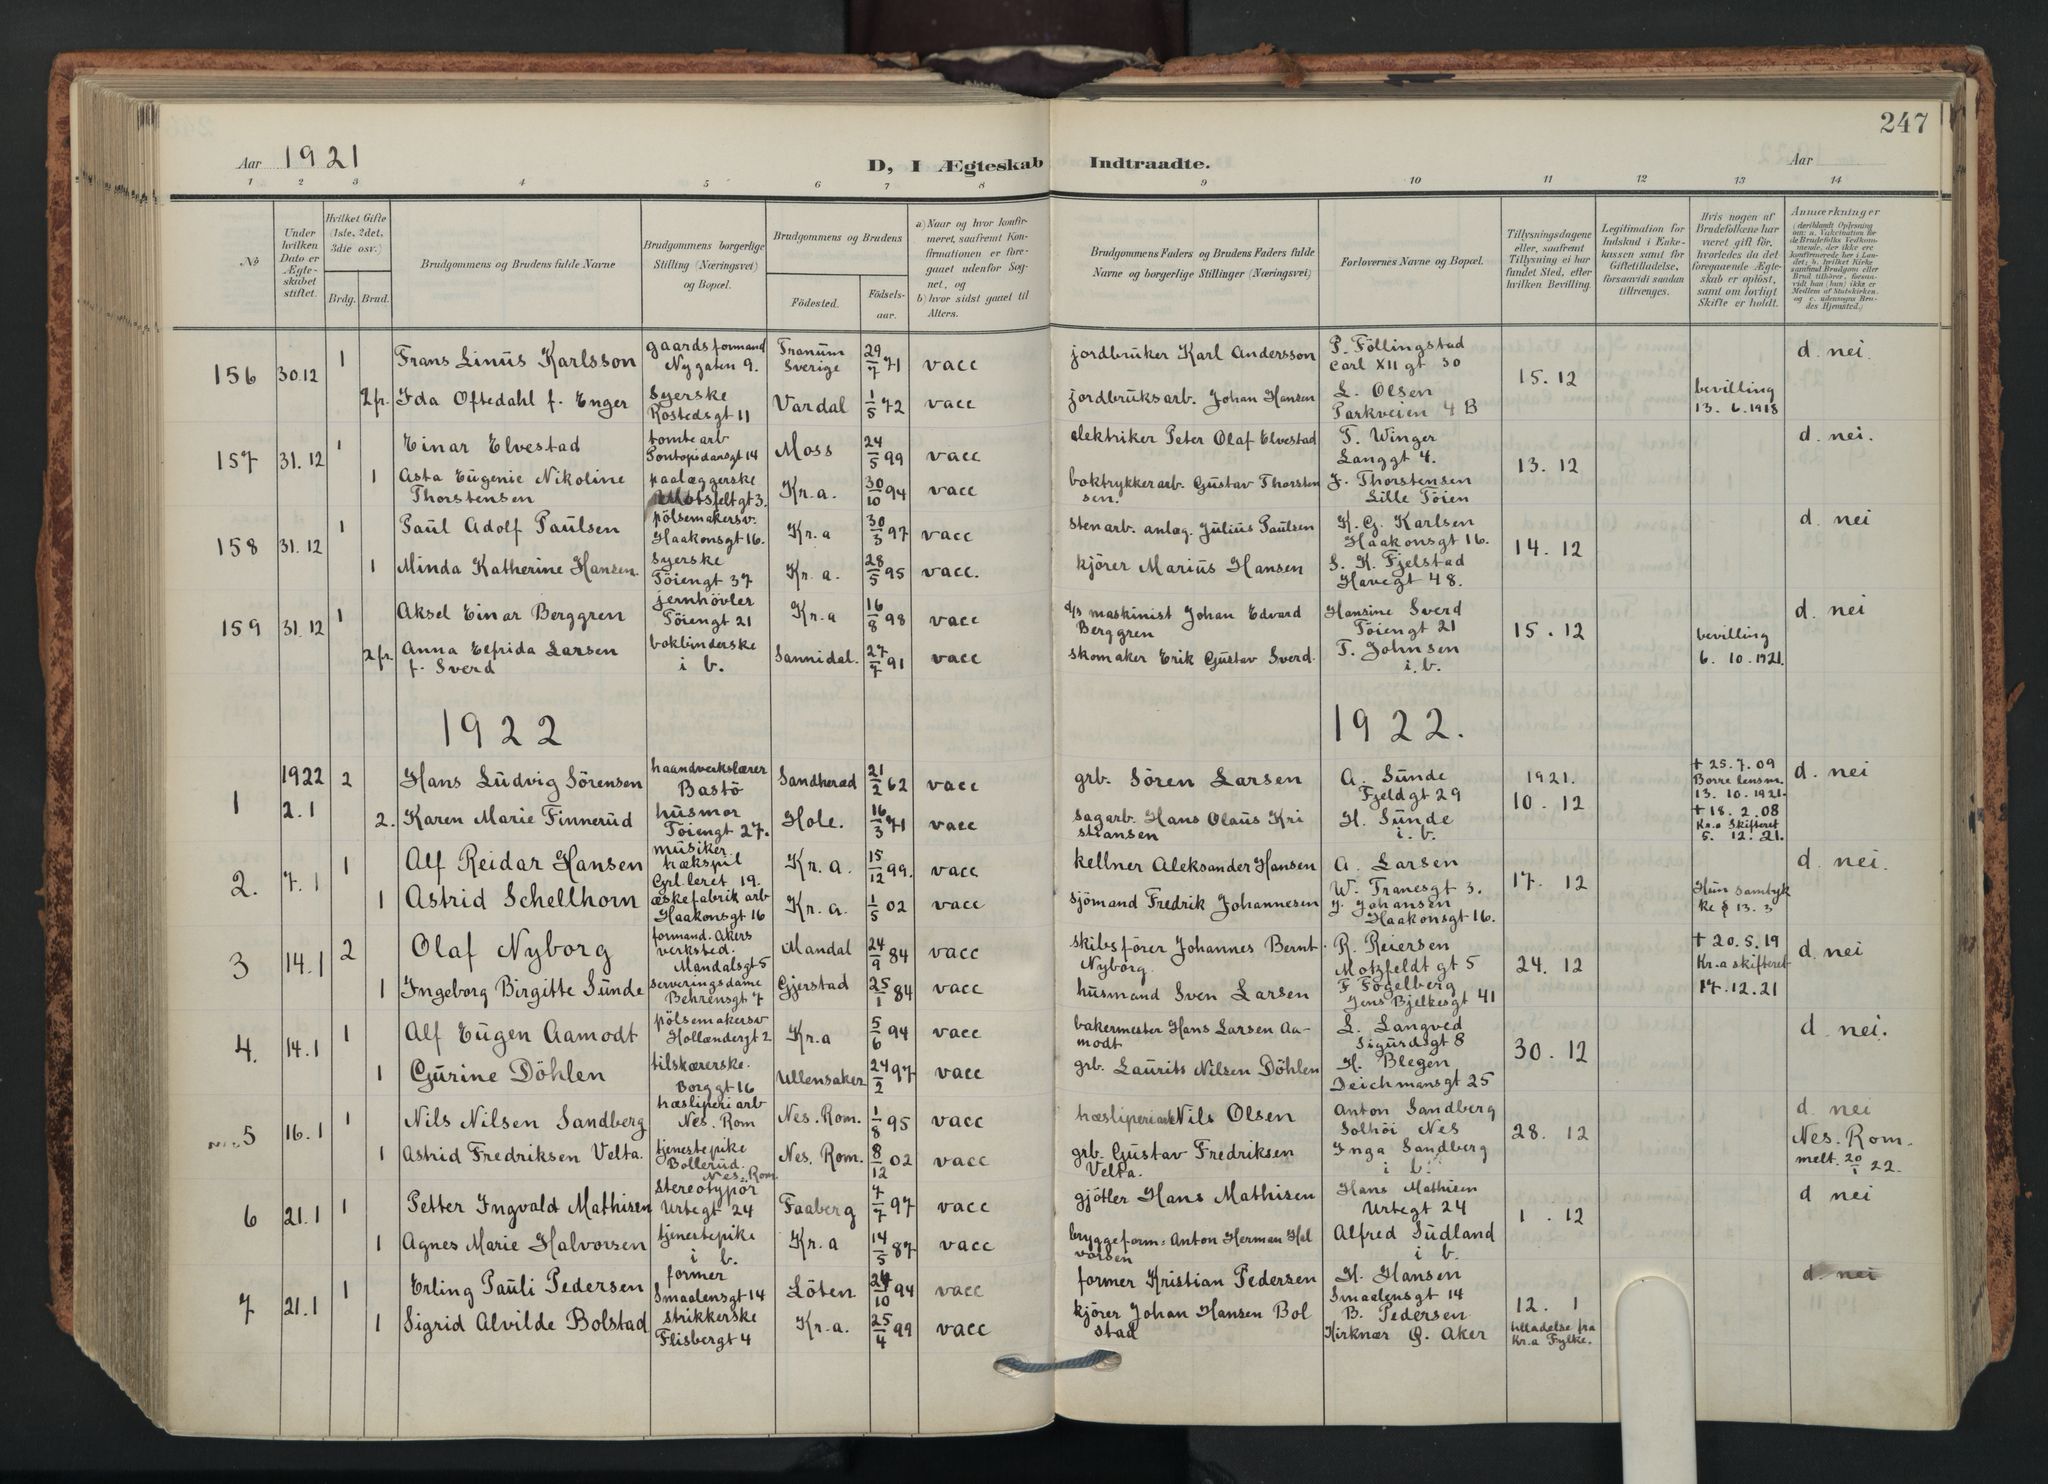 247
Aar 1921
D, I Ægteskab Indtraadte.
Aar
1 2 3 4 5 6 7 8 9 10 11 12 13 14
No
Under hvilken Dato er Ægteskabet stiftet.
Hvilket Gifte (1ste, 2det, 3die osv.)
Brdg. Brud.
Brudgommens og Brudens fulde Navne
Brudgommens borgerlige Stilling (Næringsvei) og Bopæl.
Brudgommens og Brudens
Fødested. Fødselsaar.
a) Naar og hvor konfirmeret, saafremt Konfirmationen er foregaaet udenfor Sognet, og
b) hvor sidst gaaet til Alters.
Brudgommens Faders og Brudens Faders fulde Navne og borgerlige Stillinger (Næringsvei)
Forlovernes Navne og Bopæl.
Tillysningsdagene eller, saafremt Tillysning ei har fundet Sted, efter hvilken Bevilling.
Legitimation for Indskud i Enkekassen samt for Giftetilladelse, forsaavidt saadan tiltrænges.
Hvis nogen af Brudefolkene har været gift før, hvorledes da det foregaaende Ægteskab er opløst, samt om lovligt Skifte er holdt.
Anmærkninger (deriblandt Oplysning om: a. Vaccination for de Brudefolks Vedkommende, der ikke ere konfirmerede her i Landet; b. hvilket Kirkesamfund Brudgom eller Brud tilhører, forsaavidt han (hun) ikke er Medlem af Statskirken, og c. udensogns Brudes Hjemsted.)
156 30.12 1 Frans Linus Karlsson gaardsformand Nygaten 9. Tranum Sverige 29/7 71 vacc jordbruker Karl Andersson P. Föllingstad Carl XII gt 30 15.12 d. nei
2 fr. Ida Oftedahl f. Enger Syerske Rostedsgt 11 Vardal 1/5 72 vacc jordbruksarb. Johan Hansen L. Olsen Parkveien 4 B bevilling 13.6.1918
157 31.12 1 Einar Elvestad tomtearb Pontopidansgt 14 Moss 24/5 99 vacc elektriker Peter Olaf Elvestad T. Winger Langgt 4. 13.12 d. nei.
1 Asta Eugenie Nikoline Thorstensen paalæggerske gt 3. Kr.a. 30/10 94 vacc boktrykkerarb. Gustav Thorstensen. J. Thorstensen Lille Töien
158 31.12 1 Paul Adolf Paulsen pölsemakersv. Haakonsgt 16. Kr.a 30/3 97 vacc stenarb. anlæg. Julius Paulsen K. G. Karlsen Haakonsgt 16. 14.12 d. nei
1 Minda Katherine Hansen. Syerske Töiengt 37 Kr.a. 28/5 95 vacc. kjörer Marius Hansen S. K. Fjelstad Havegt 48.
159 31.12 1 Aksel Einar Berggren jernhövler Töiengt 21 Kr.a 16/8 98 vacc d/s maskinist Johan Edvard Berggren Hansine Sverd Töiengt 21 15.12 d. nei
2 fr. Anna Elfrida Larsen f. Sverd bokbinderske i b. Sannidal. 27/7 91 vacc skomaker Erik Gustav Sverd. T. Johnsen i. b. bevilling 6.10.1921.
1922 1922.
1 1922 2.1 2 Hans Ludvig Sörensen haandverkslærer Bastö Sandherad 21/2 62 vacc grb. Sören Larsen A. Sunde Fjeldgt 29 1921. 10.12 + 25.7.09 Borre lensm. 13.10.1921. d. nei
2. Karen Marie Finnerud husmor Töiengt 27. Hole. 16/3 71 vacc sagarb. Hans Olaus Kristiansen H. Sunde i. b. + 18.2.08 Kr.a Skifteret 5.12.21.
2. 7.1 1 Alf Reidar Hansen musiker trækspil Grl.leret 19. Kr.a. 15/12 99. vacc kellner Aleksander Hansen A. Larsen W. Tranesgt 3. 17.12 d. nei.
1 Astrid Schellhorn æskefabrik arb Haakonsgt 16 Kr.a. 1/5 02 vacc sjömand Fredrik Johannesen J. Johansen Haakonsgt 16. Hun samtykke § 13.3
3 14.1 2 Olaf Nyborg formand. Akers verksted. Mandalsgt 5 Mandal 24/9 84 vacc skibsförer Johannes Bernt Nyborg. R. Reiersen Motzfeldt gt 5 24.12 + 20.5.19 Kr.a skifteret 17.12.21 d. nei
1 Ingeborg Birgitte Sunde serveringsdame Behrensgt 7 Gjerstad 25/1 84 vacc husmand Sven Larsen F Fögelberg Jens Bjelkesgt 41
4. 14.1 1 Alf Eugen Aamodt pölsemakersv Hollændergt 2 Kr.a 5/6 94 vacc bakermester Hans Larsen Aamodt L. Langved Sigurdsgt 8 30.12 d. nei.
1 Gurine Döhlen tilskærerske. Borggt 16 Ullensaker 24/2 97 vacc grb. Laurits Nilsen Döhlen H. Blegen Deichmansgt 25
5 16.1 1 Nils Nilsen Sandberg træsliperiarb Nes. Rom Nes. Rom. 1/8 95 vacc træsliperiarb Nils Olsen Anton Sandberg Solhöi Nes 28.12 d. nei
1 Astrid Fredriksen Velta. tjenestepike Bollerud. Nes. Rom Nes. Rom. 8/12 02 vacc grb. Gustav Fredriksen Velta. Inga Sandberg i b. Nes. Rom. melt. 20/1 22.
6 21.1 1 Petter Ingvald Mathisen stereotypör Urtegt 24 Faaberg 7/7 97 vacc gjötler Hans Mathisen Hans Mathisen Urtegt 24 1.12 d nei
1 Agnes Marie Halvorsen tjenestepike i b. Kr.a 14/5 87 vacc bryggeform: Anton Herman Halvorsen Alfred Sudland i b.
7 21.1 1 Erling Pauli Pedersen former Smaalensgt 14 Löten 24/10 94 vacc former Kristian Pedersen H. Hansen Smaalensgt 14 12.1 d. nei
1 Sigrid Alvilde Bolstad strikkerske Flisbergt 4 Kr.a. 25/4 99 vacc kjörer Johan Hansen Bolstad B. Pedersen Kirknær Ö. Aker tilladelse fra Kr.a Fylke.